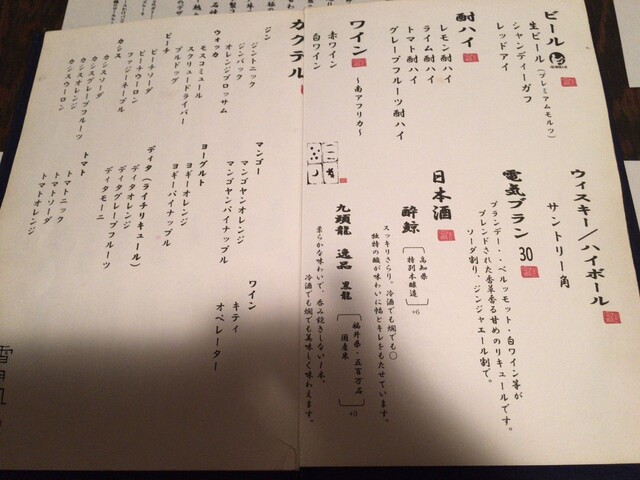 ビール
生ビール（プレミアムモルツ）
シャンディーガフ
レッドアイ
酎ハイ
レモン酎ハイ
ライム酎ハイ
トマト酎ハイ
グレープフルーツ酎ハイ
ワイン
〜南アフリカ〜
赤ワイン
白ワイン
ウィスキー／ハイボール
サントリー角
電気ブラン 30
ブランデー・・ベルモット・白ワイン等が
ブレンドされた香草香る甘めのリキュールです。
ソーダ割り、ジンジャエール割で。
日本酒
酔鯨
高知県
特別本醸造
+6
スッキリさらり。冷酒でも燗でも〇
独特の酸が味わいに幅とキレをもたせています。
九頭龍 逸品 黒龍
福井県・五百万石
国産米
柔らかな味わいで、呑み飽きしない１本。
冷酒でも燗でも美味しく味わえます。
カクテル
ジン
ジントニック
ジンバック
オレンジブロッサム
ウォッカ
モスコミュール
スクリュードライバー
ブルドッグ
ピーチ
ピーチソーダ
ピーチウーロン
ファジーネーブル
カシス
カシスソーダ
カシスグレープフルーツ
カシスオレンジ
カシスウーロン
マンゴー
マンゴヤンオレンジ
マンゴヤンパイナップル
ヨーグルト
ヨギーオレンジ
ヨギーパイナップル
ディタ（ライチリキュール）
ディタオレンジ
ディタグレープフルーツ
ディタモーニ
トマト
トマトニック
トマトソーダ
トマトオレンジ
ワイン
キティ
オペレーター